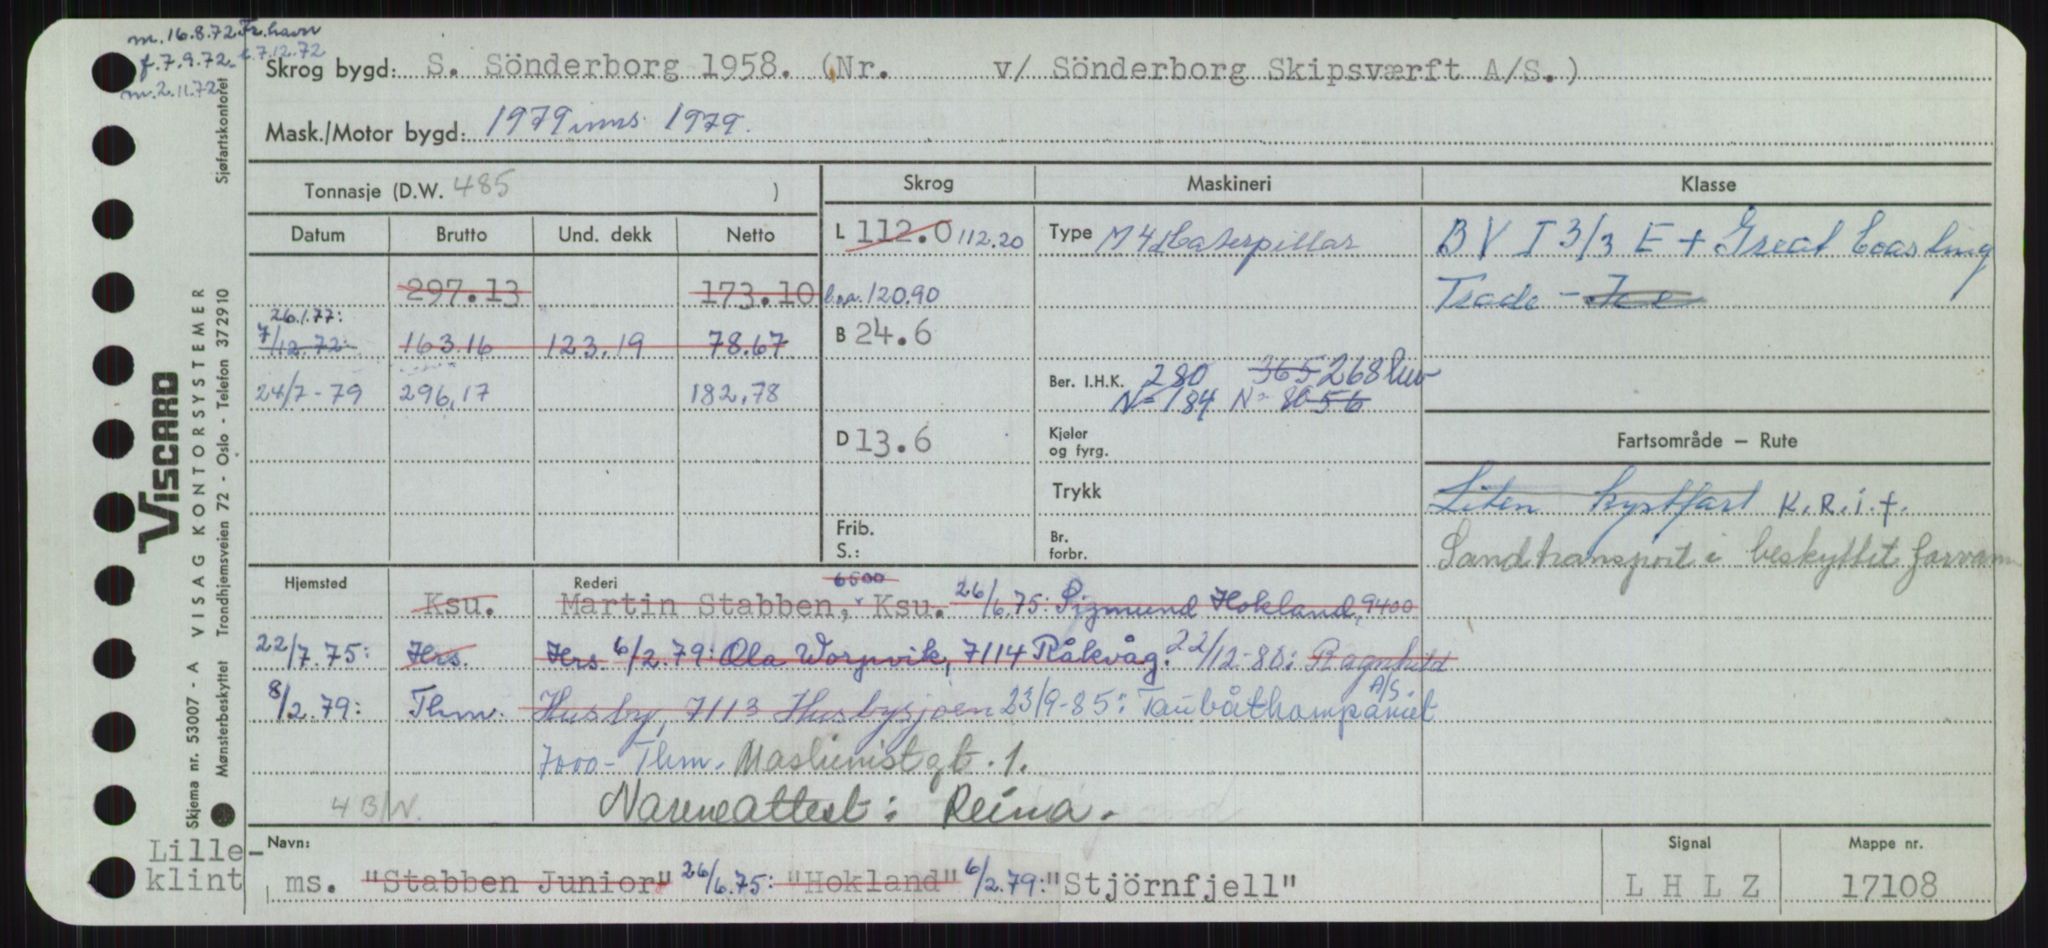 m. 16.8.72 Fr.havn
f. 7.9.72. f. 7.12.72
m. 2.11.72
Skrog bygd: S. Sönderborg 1958. (Nr. v/ Sönderborg Skipsværft A/S.)
Mask./Motor bygd: 1979 inns. 1979.
Tonnasje (D.W. 485 )
Skrog Maskineri Klasse
Datum Brutto Und. dekk Netto
L 112.0 112.20 Type M4 Caterpillar B V I 3/3 E + Great Coasting
297.13 173.10 l.o.a. 120.90 Trade - Ice
26.1.77:
7/12.72: 163.16 123.19 78.67 B 24.6
Ber. I.H.K. 280 365 268 kw
24/7-79 296,17 182,78 N=184 N= 80 56
D 13.6 Kjeler og fyrg. Fartsområde – Rute
Trykk Liten kystfart K.R.i.f.
Frib. S.: Br. forbr. Sandtransport i beskyttet farvann
Hjemsted Rederi 6500
Ksu. Martin Stabben, Ksu. 26/6.75: Sigmund Hokland, 9400
22/7.75: Hrs. Hrs 6/2.79: Ola Worpvik, 7114 Råkvåg. 22/12-80: Ragnhild
8/2.79: Thm. Husby, 7113 Husbysjøen 23/9-85: Taubåtkompaniet A/S
7000 - Thm. Maskinistgt. 1.
4 B/N. Navneattest: Reina.
Navn: Signal Mappe nr.
Lille-
klint ms. "Stabben Junior" 26/6.75: "Hokland" 6/2.79: "Stjörnfjell" L H L Z 17108
VISCARD
Skjema nr. 53007 - A VISAG KONTORSYSTEMER
Mønsterbeskyttet Trondhjemsveien 72 - Oslo - Telefon 372910 Sjøfartskontoret